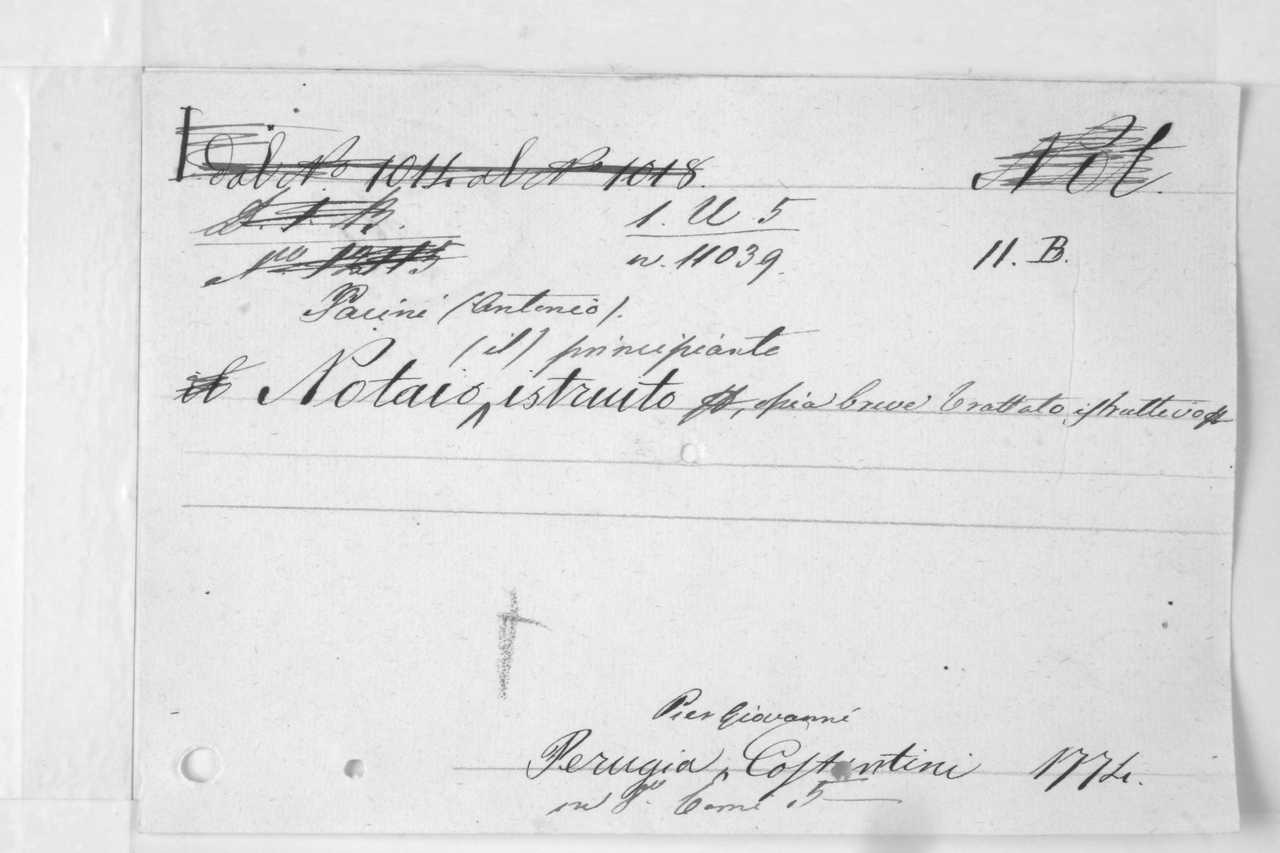 Dal No 1014 al No 1018. Not.
I. I. B. 1. U 5
No 10115 n. 11039. 11. B.
Pacini (Antonio).
(il) principiante
il Notaio istruito, ossia breve trattato istruttivo
Pier Giovanni
Perugia, Costantini 1774.
in 8o. Tomi 5